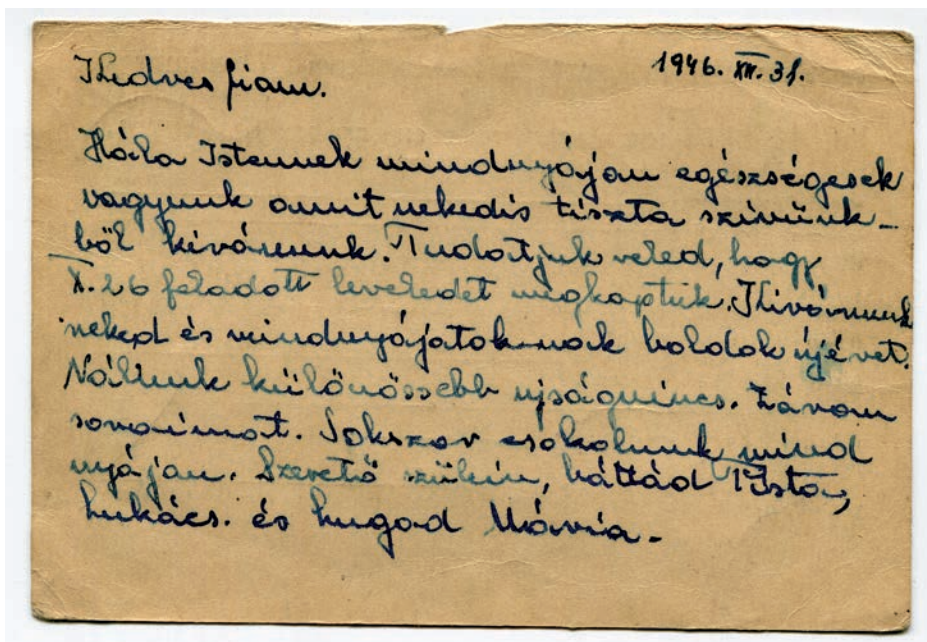 1946. XII. 31.
Kedves fiam.
Hála Istennek mindnyájan egészségesek
vagyunk amit nekedis tiszta szivünk-
ből kivánunk. Tudatjuk veled, hogy
X. 26 feladott leveledet megkaptuk. Kivánunk
neked és mindnyájatoknak boldok újévet.
Nálunk különössebb ujságnincs. Zárom
soraimat. Sokszor csokolunk mind
nyájan. Szerető szülein, báttád Pista,
Lukács. és hugod Mária.